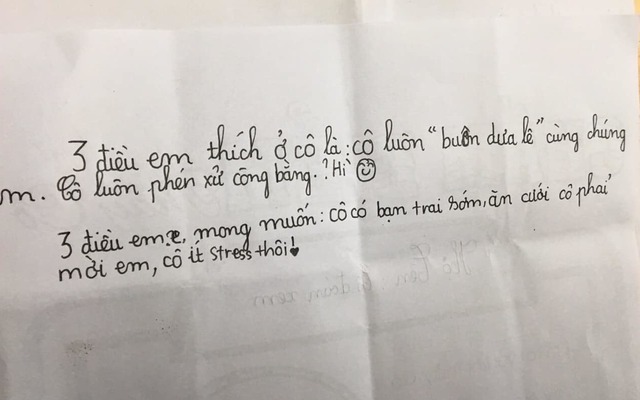 3 điều em thích ở cô là: cô luôn "buôn dưa lê" cùng chúng
m. Cô luôn phén xử công bằng.? Hì
3 điều em mong muốn: cô có bạn trai sớm, ăn cưới cô phải
mời em, cô ít stress thôi!